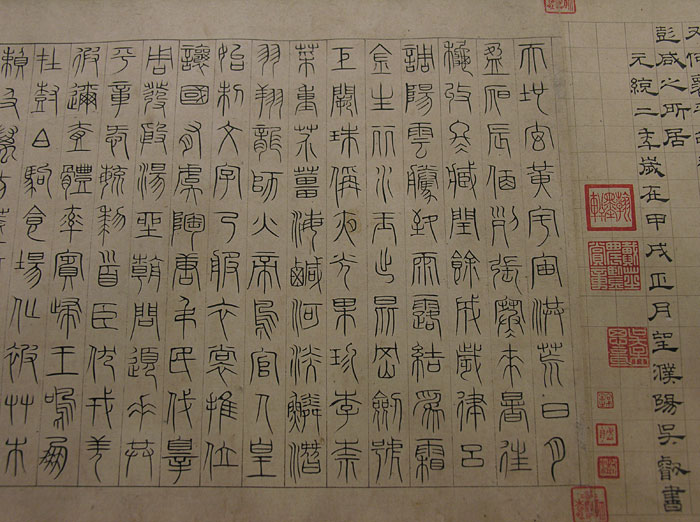 彭城之所居
元統二年歲在甲戌正月望濮陽吳叡書
天地玄黃宇宙洪荒日月
盈昃辰宿列張寒來暑往
秋收冬藏閏餘成歲律呂
調陽雲騰致雨露結爲霜
金生麗水玉出崑岡劍號
巨闕珠稱夜光果珍李柰
菜重芥薑海鹹河淡鱗潛
羽翔龍師火帝鳥官人皇
始制文字乃服衣裳推位
讓國有虞陶唐弔民伐辠
周發殷湯坐朝問道垂拱
平章愛育黎首臣伏戎羌
遐邇壹體率賓歸王鳴鳳
在樹白駒食場化被艸木
賴及萬方